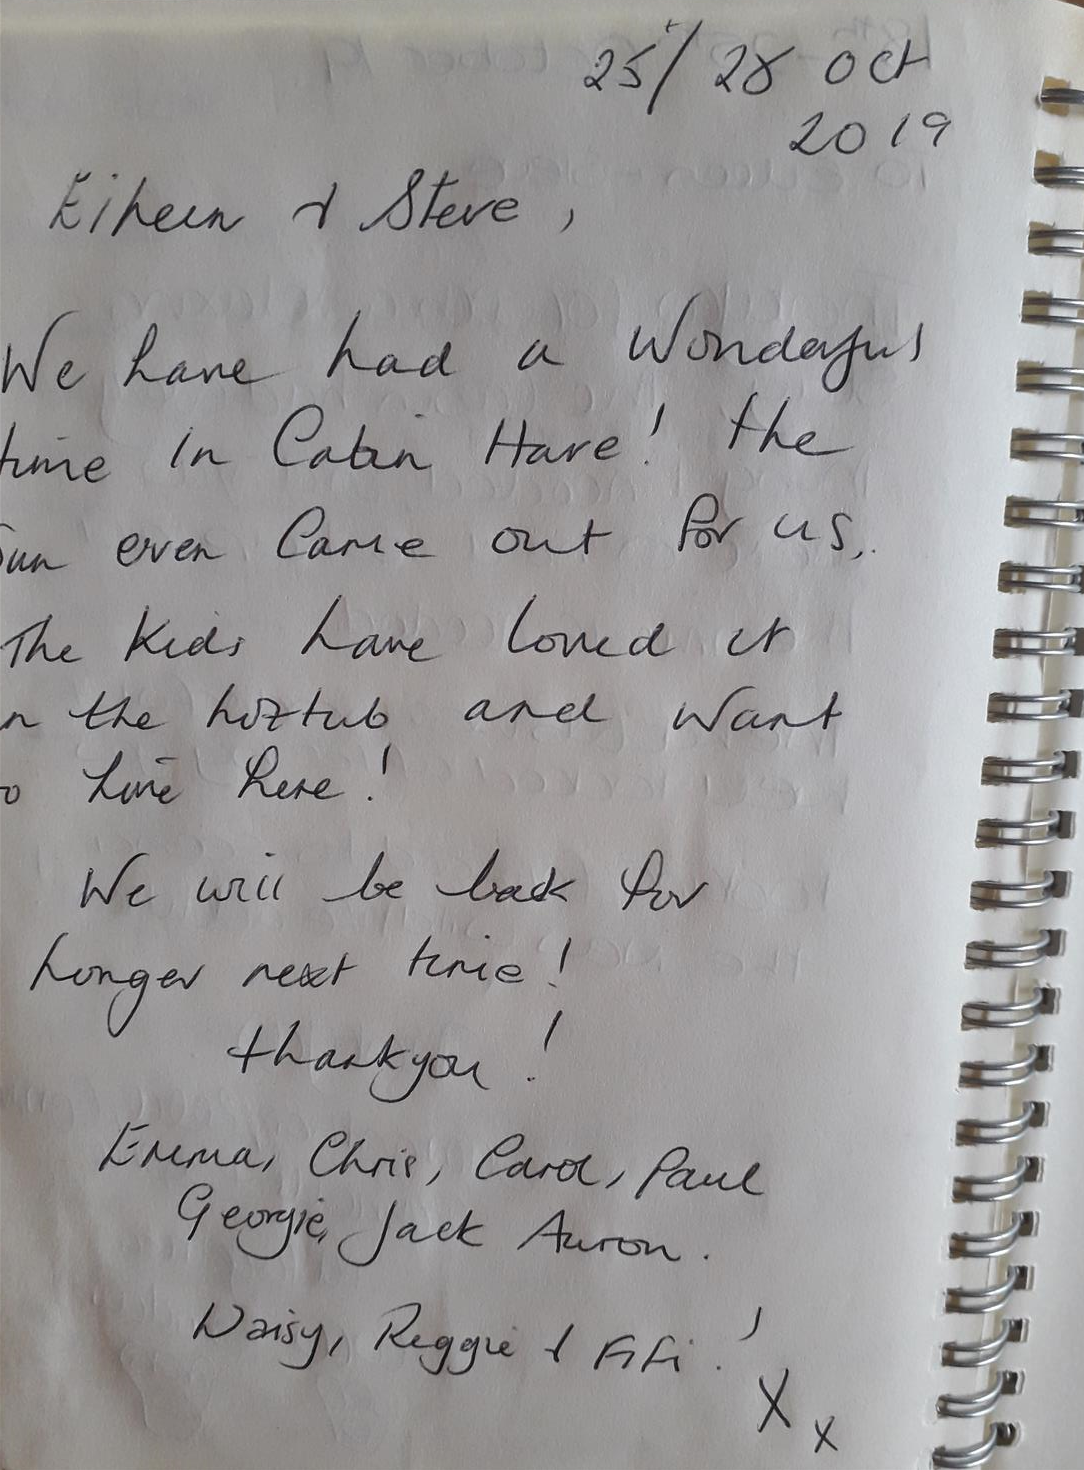 25/28 Oct
2019
Eileen & Steve,
We have had a wonderful
time in Cabin Hare! the
Sun even came out for us.
The kids have loved it
in the hottub and want
to live here!
We will be back for
longer next time!
thankyou!
Emma, Chris, Carol, Paul
Georgie, Jack Auron.
Daisy, Reggie & Fifi!
X x